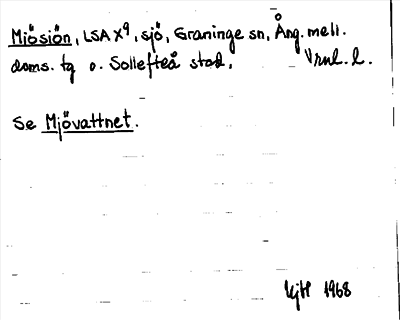 Mjösjön, LSA X⁹, sjö, Graninge sn, Ång. mell.
doms. tg o. Sollefteå stad. Vrnl. l.
Se Mjövattnet.
1968